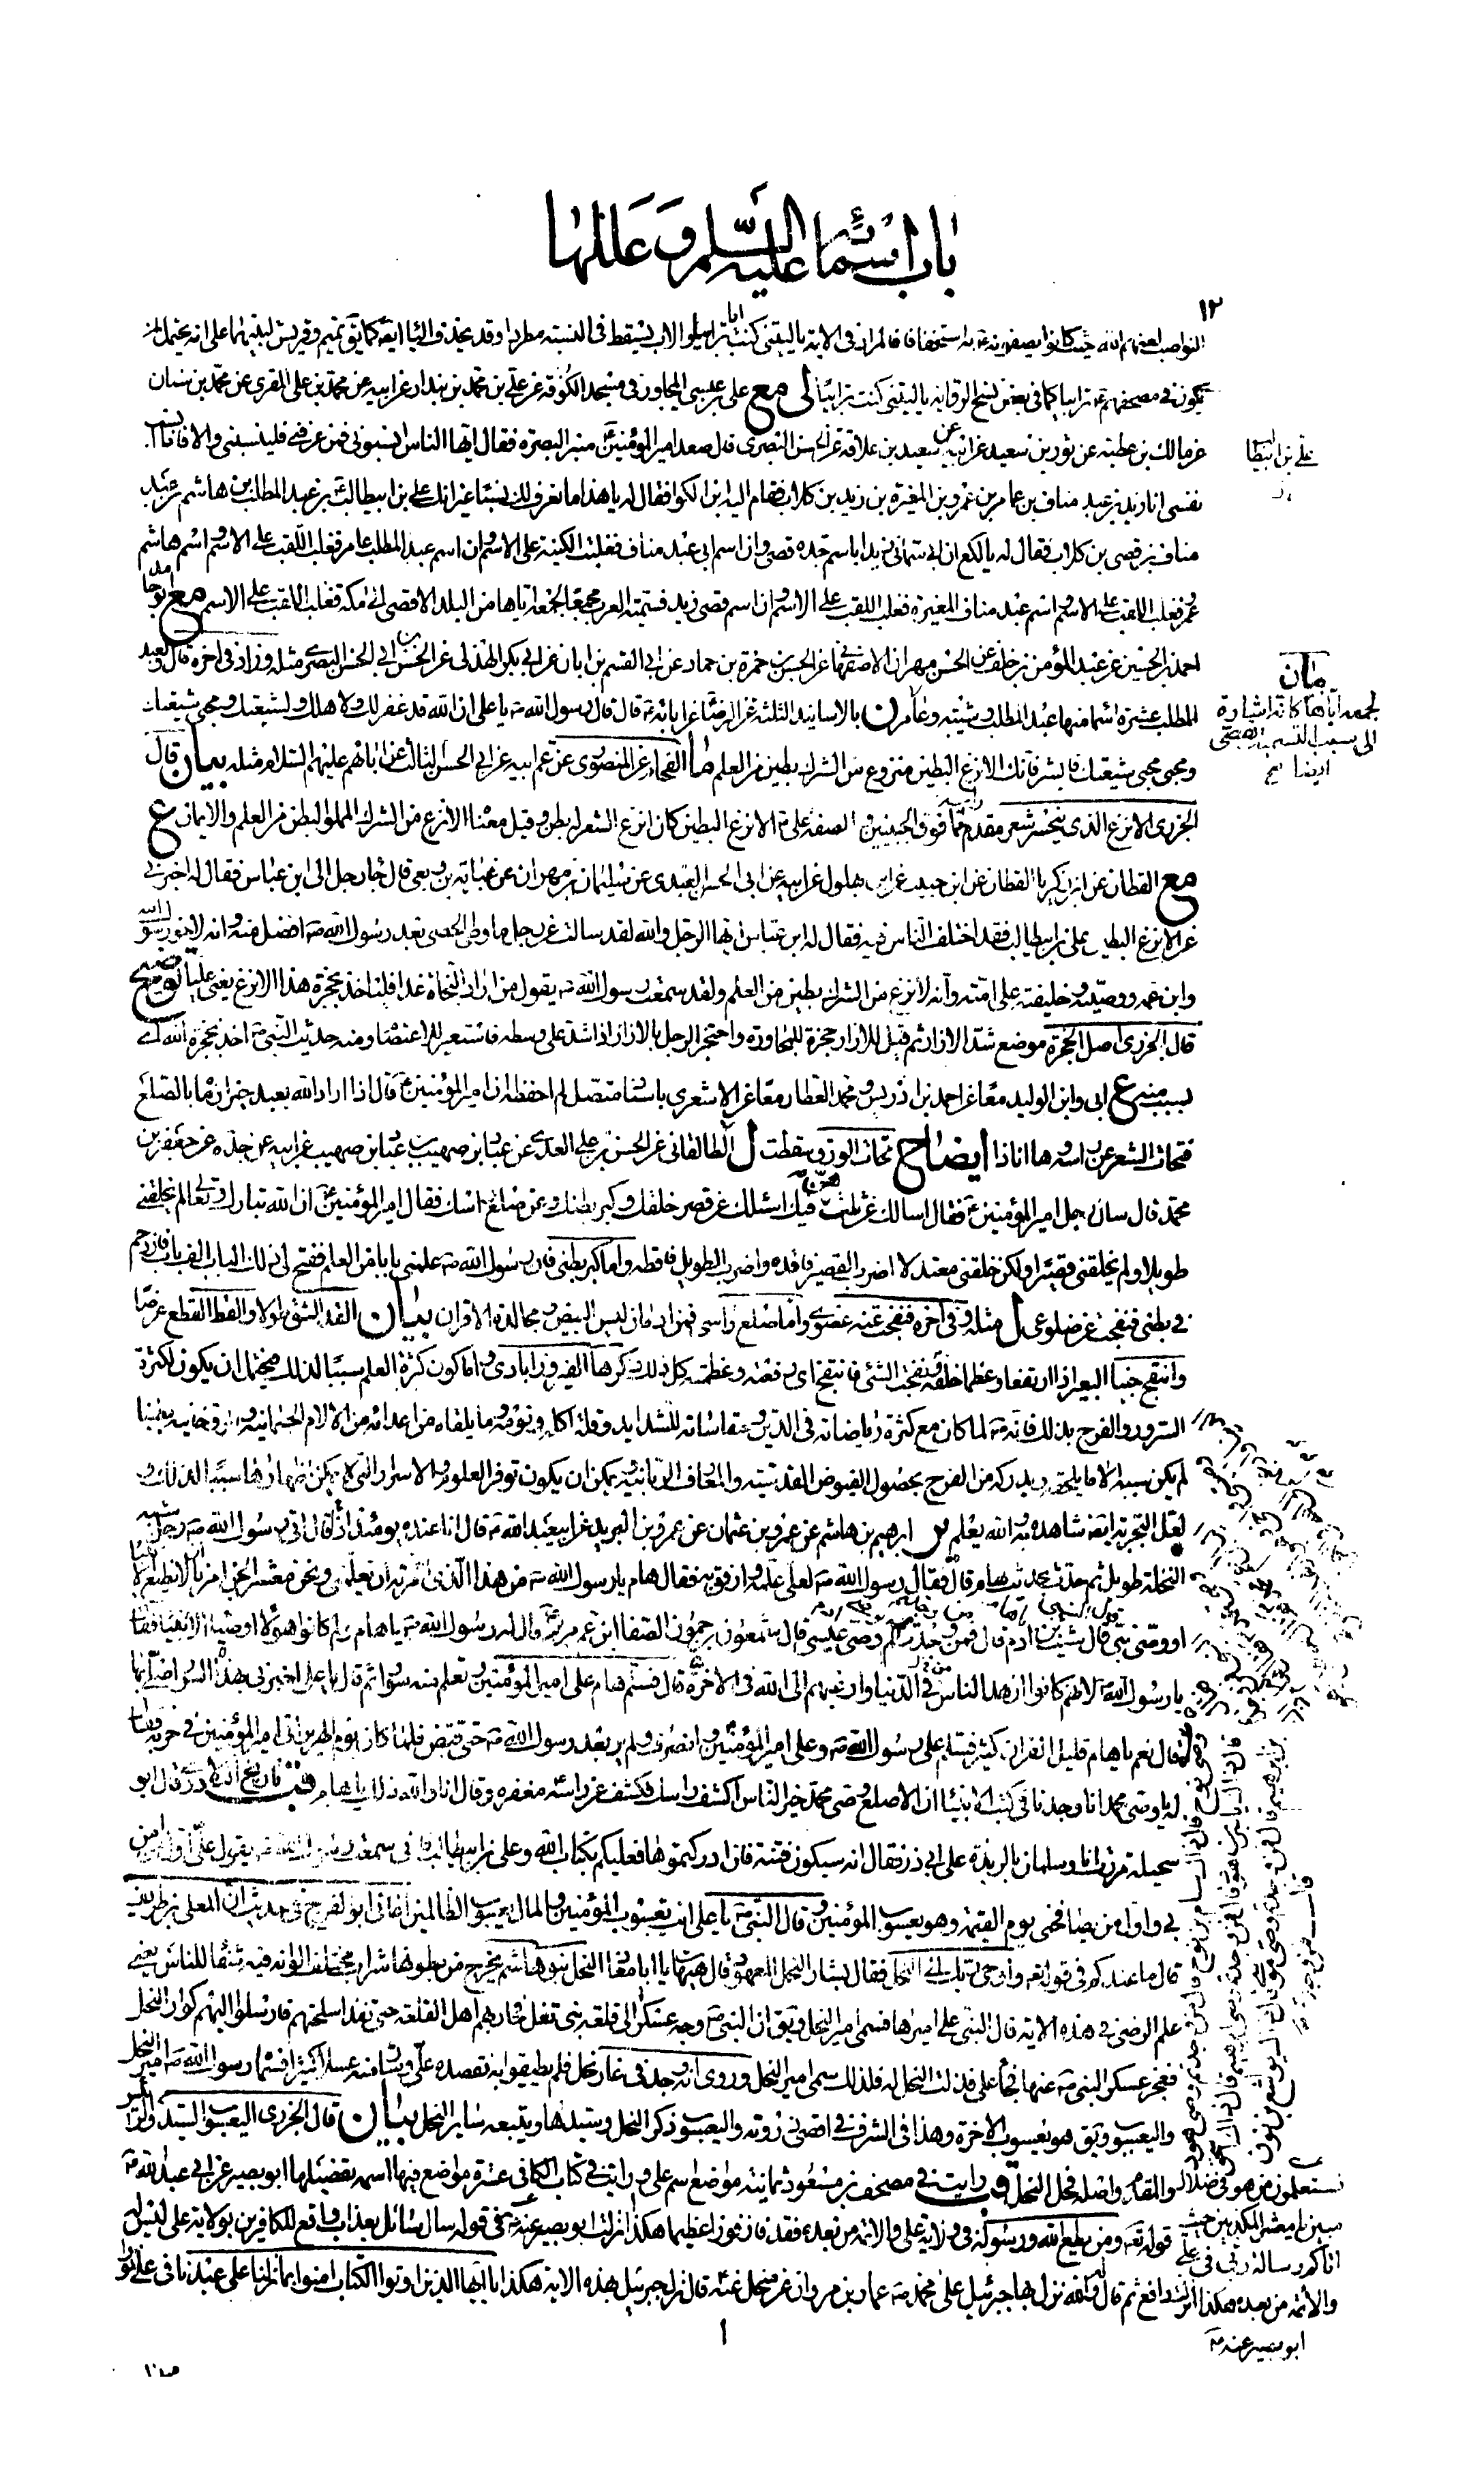 باب اسمائه عليه السلم و عللها
١٢
النواصب لعنهم الله حيث كانوا يصفونه به استخفافا فالمراد في الاية يا ليتني كنت ابا ترابيا والاب يسقط في النسبة مطردا وقد يحذف الياء ايضا كما يق تميم وقريش لبنيهما على انه يحتمل ان
يكون في مصحفهم ترابيا كما في بعض نسخ الرواية يا ليتني كنت ترابيا لى مع علي بن عيسى المجاور في مسجد الكوفة عن علي بن محمد بن بندار عن ابيه عن محمد بن علي المقري عن محمد بن سنان
عن مالك بن عطية عن ثوير بن سعيد عن ابيه عن سعيد بن علاقة عن الحسن البصري قال صعد امير المؤمنين منبر البصرة فقال ايها الناس انسبوني فمن عرفني فلينسبني والا فانا انسب
علي بن ابيطا
نفسي انا زيد بن عبد مناف بن عامر بن عمرو بن المغيرة بن زيد بن كلاب فقام اليه ابن الكوا فقال له يا هذا ما نعرف لك نسبا غير انك علي بن ابيطالب بن عبد المطلب بن هاشم بن عبد
مناف بن قصي بن كلاب فقال له يا لكع ان ابي سماني زيدا باسم جده قصي وان اسم ابي عبد مناف فغلبت الكنية على الاسم وان اسم عبد المطلب عامر فغلب اللقب على الاسم واسم هاشم
عمرو فغلب اللقب على الاسم واسم عبد مناف المغيرة فغلب اللقب على الاسم وان اسم قصي زيد فسمته العرب مجمعا لجمعه اياها من البلد الاقصى الى مكة فغلب اللقب على الاسم مع ابو حامد
احمد بن الحسين عن عبد المؤمن بن خلف عن الحسن بن مهران الاصفهاني عن الحسن بن حمزة بن حماد عن ابي القسم بن ابان عن ابي بكر الهذلي عن الحسن بن ابي الحسن البصري مثله وزاد في اخره قال ولعبد
بيان
لجمعه اياها كانه اشارة
ايضا
المطلب عشرة اسماء منها عبد المطلب وشيبة وعامر ن بالاسانيد الثلثة عن الرضا عن ابائه قال قال رسول الله ص يا علي ان الله قد غفر لك ولاهلك ولشيعتك ومحبي شيعتك
ومحبي محبي شيعتك فابشر فانك الانزع البطين منزوع من الشرك بطين من العلم ما الفحام عن المنصوري عن عم ابيه عن ابي الحسن الثالث عن ابائهم عليهم السلام مثله بيان قال
الجزري الانزع الذي ينحسر شعر مقدم راسه مما فوق الجبينين وفي صفة علي الانزع البطين كان انزع الشعر له بطن وقيل معناه الانزع من الشرك المملو البطن من العلم والايمان ع
مع القطان عن ابن زكريا القطان عن ابن حبيب عن ابن بهلول عن ابيه عن ابي الحسن العبدي عن سليمان بن مهران عن عباية بن ربعي قال جاء رجل الى ابن عباس فقال له اخبرني
عن الانزع البطين علي بن ابيطالب فقد اختلف الناس فيه فقال له ابن عباس ايها الرجل والله لقد سالت عن رجل ما وطي الحصى بعد رسول الله ص افضل منه وانه لاخو رسول الله
وابن عمه ووصيه وخليفته على امته وانه لانزع من الشرك بطين من العلم ولقد سمعت رسول الله ص يقول من اراد النجاة غدا فلياخذ بحجزة هذا الانزع يعني عليا توضيح
قال الجزري اصل الحجزة موضع شد الازار ثم قيل للازار حجزة للمجاورة واحتجز الرجل بالازار اذا شده على وسطه فاستعير للاعتصام ومنه حديث النبي ص اخذ بحجزة الله اي
بسبب منه ع ابي وابن الوليد معا عن احمد بن ادريس ومحمد العطار معا عن الاشعري باسناد متصل لم احفظه ان امير المؤمنين قال اذا اراد الله بعبد خيرا رماه بالصلع
فتحات الشعر عن راسه وها انا ذا ايضاح تحات الورق سقطت ل الطالقاني عن الحسن بن علي العدوي عن عباد بن صهيب بن عباد بن صهيب عن ابيه عن جده عن جعفر بن
محمد قال سال رجل امير المؤمنين فقال اسالك عن ثلث هن فيك اسئلك عن قصر خلقك وكبر بطنك وعن صلع راسك فقال امير المؤمنين ان الله تبارك وتعالى لم يخلقني
طويلا ولم يخلقني قصيرا ولكن خلقني معتدلا اضرب القصير فاقده واضرب الطويل فاقطه واما كبر بطني فان رسول الله ص علمني بابا من العلم ففتح لي ذلك الباب الف باب فازدحم
في بطني فنفخت عن ضلوعي ل مثله وفي اخره فنفخت عنه عضوي واما صلع راسي فمن ادمان لبس البيض ومجالدة الاقران بيان القد الشق طولا والقط القطع عرضا
وانتفج جنبا البعير اذا ارتفعا وعظما خلقة ونفجت الشئ فانتفج اي رفعته وعظمته كل ذلك ذكرها الفيروزابادي واما كون كثرة العلم سببا لذلك فيحتمل ان يكون لكثرة
السرور والفرح بذلك فانه لما كان مع كثرة رياضاته في الدين ومقاساته للشدايد وقلة اكله ونومه وما يلقاه من اعدائه من الالام الجسمانية والروحانية
لم يكن سببه الا ما يلحقه ويدركه من الفرح بحصول الفيوض القدسية والمعارف الربانية ويمكن ان يكون توفر العلوم والاسرار التي لا يمكن اظهارها سببا لذلك و
لعل التجربة ايضا شاهدة به والله يعلم ير ابرهيم بن هاشم عن عمرو بن عثمان عن عمرو بن ابي عبد الله قال انا عنده يومئذ اذ قال اتى رسول الله ص رجل شبيه
النخلة طويل ثم حدثه بحديث هام قال فقال رسول الله ص لعلي علمه وارفق به فقال هام يا رسول الله ص من هذا الذي امرته ان يعلمني ونحن معشر الجن امرنا ان لا نطيع الا نبيا
او وصي نبي قال شيث بن ادم قال فمن وجدتم وصي عيسى قال شمعون بن حمون الصفا ابن عم مريم قال له رسول الله ص يا هام ولم كانوا هؤلاء اوصياء الانبياء فقال
يا رسول الله لانهم كانوا ازهد الناس في الدنيا وارغبهم الى الله في الاخرة قال فسلم هام على امير المؤمنين وتعلم منه سورا ثم قال يا علي اخبرني بهذه السور اصلي بها
قال نعم يا هام قليل القران كثير فسلم على رسول الله ص وعلى امير المؤمنين وانصرف ولم ير بعد رسول الله ص حتى قبض فلما كان يوم الهرير اتى امير المؤمنين في حربه فقال
له يا وصي محمد انا وجدنا في كتب الانبياء ان الاصلع وصي محمد خير الناس اكشف راسك فكشف عن راسه مغفره وقال انا والله ذلك يا هام قب تاريخ البلاذري قال ابو
سخيلة مررت انا وسلمان بالربذة على ابي ذر فقال انه سيكون فتنة فان ادركتموها فعليكم بكتاب الله وعلي بن ابيطالب فاني سمعت رسول الله ص يقول علي اول من امن
بي واول من يصافحني يوم القيمة وهو يعسوب المؤمنين وقال النبي ص يا علي انت يعسوب المؤمنين والمال يعسوب الظالمين اغاني ابو الفرج في حديث ان المعلى بن طريف
قال ما عندكم في قوله تعالى واوحى ربك الى النحل فقال بشار النحل المعهود قال هيهات يا ابا معاذ النحل بنو هاشم يخرج من بطونها شراب مختلف الوانه فيه شفاء للناس يعني
علم الرضي في هذه الاية قال النبي علي اميرها فسمي امير النحل ويق ان النبي ص وجه عسكرا الى قلعة بني ثعل فحاربهم اهل القلعة حتى نفد اسلحتهم فارسلوا اليهم كوار النحل
فعجز عسكر النبي ص عنها فجاء علي فذلت النحل له فلذلك سمي امير النحل وروي انه وجد في غار نحل فلم يطيقوا به فقصده علي وشار منه عسلا كثيرا فسماه رسول الله ص امير النحل
واليعسوب ويق هو يعسوب الاخرة وهذا في الشرف في اقصى ذروته واليعسوب ذكر النحل وسيدها ويتبعه ساير النحل بيان قال الجزري اليعسوب السيد والرئيس
والمقدم واصله فحل النحل قب رايت في مصحف ابن مسعود ثمانية مواضع اسم علي ورايت في كتاب الكافي عشرة مواضع فيها اسمه تفصيلها ابو بصير عن ابي عبد الله
قوله تعالى ومن يطع الله ورسوله في ولاية علي والائمة من بعده فقد فاز فوزا عظيما هكذا نزلت ابو بصير عنه في قوله سال سائل بعذاب واقع للكافرين بولاية علي ليس له
دافع ثم قال والله نزل بها جبرئيل على محمد ص عمار بن مروان عن منخل عنه قال نزل جبرئيل بهذه الاية هكذا يا ايها الذين اوتوا الكتاب امنوا بما نزلنا على عبدنا في علي نورا
فستعلمون من هو في ضلال
مبين يا معشر المكذبين حيث
اتاكم رسالة ربي في علي
والائمة من بعده هكذا انزلت
ابو بصير عنه
١